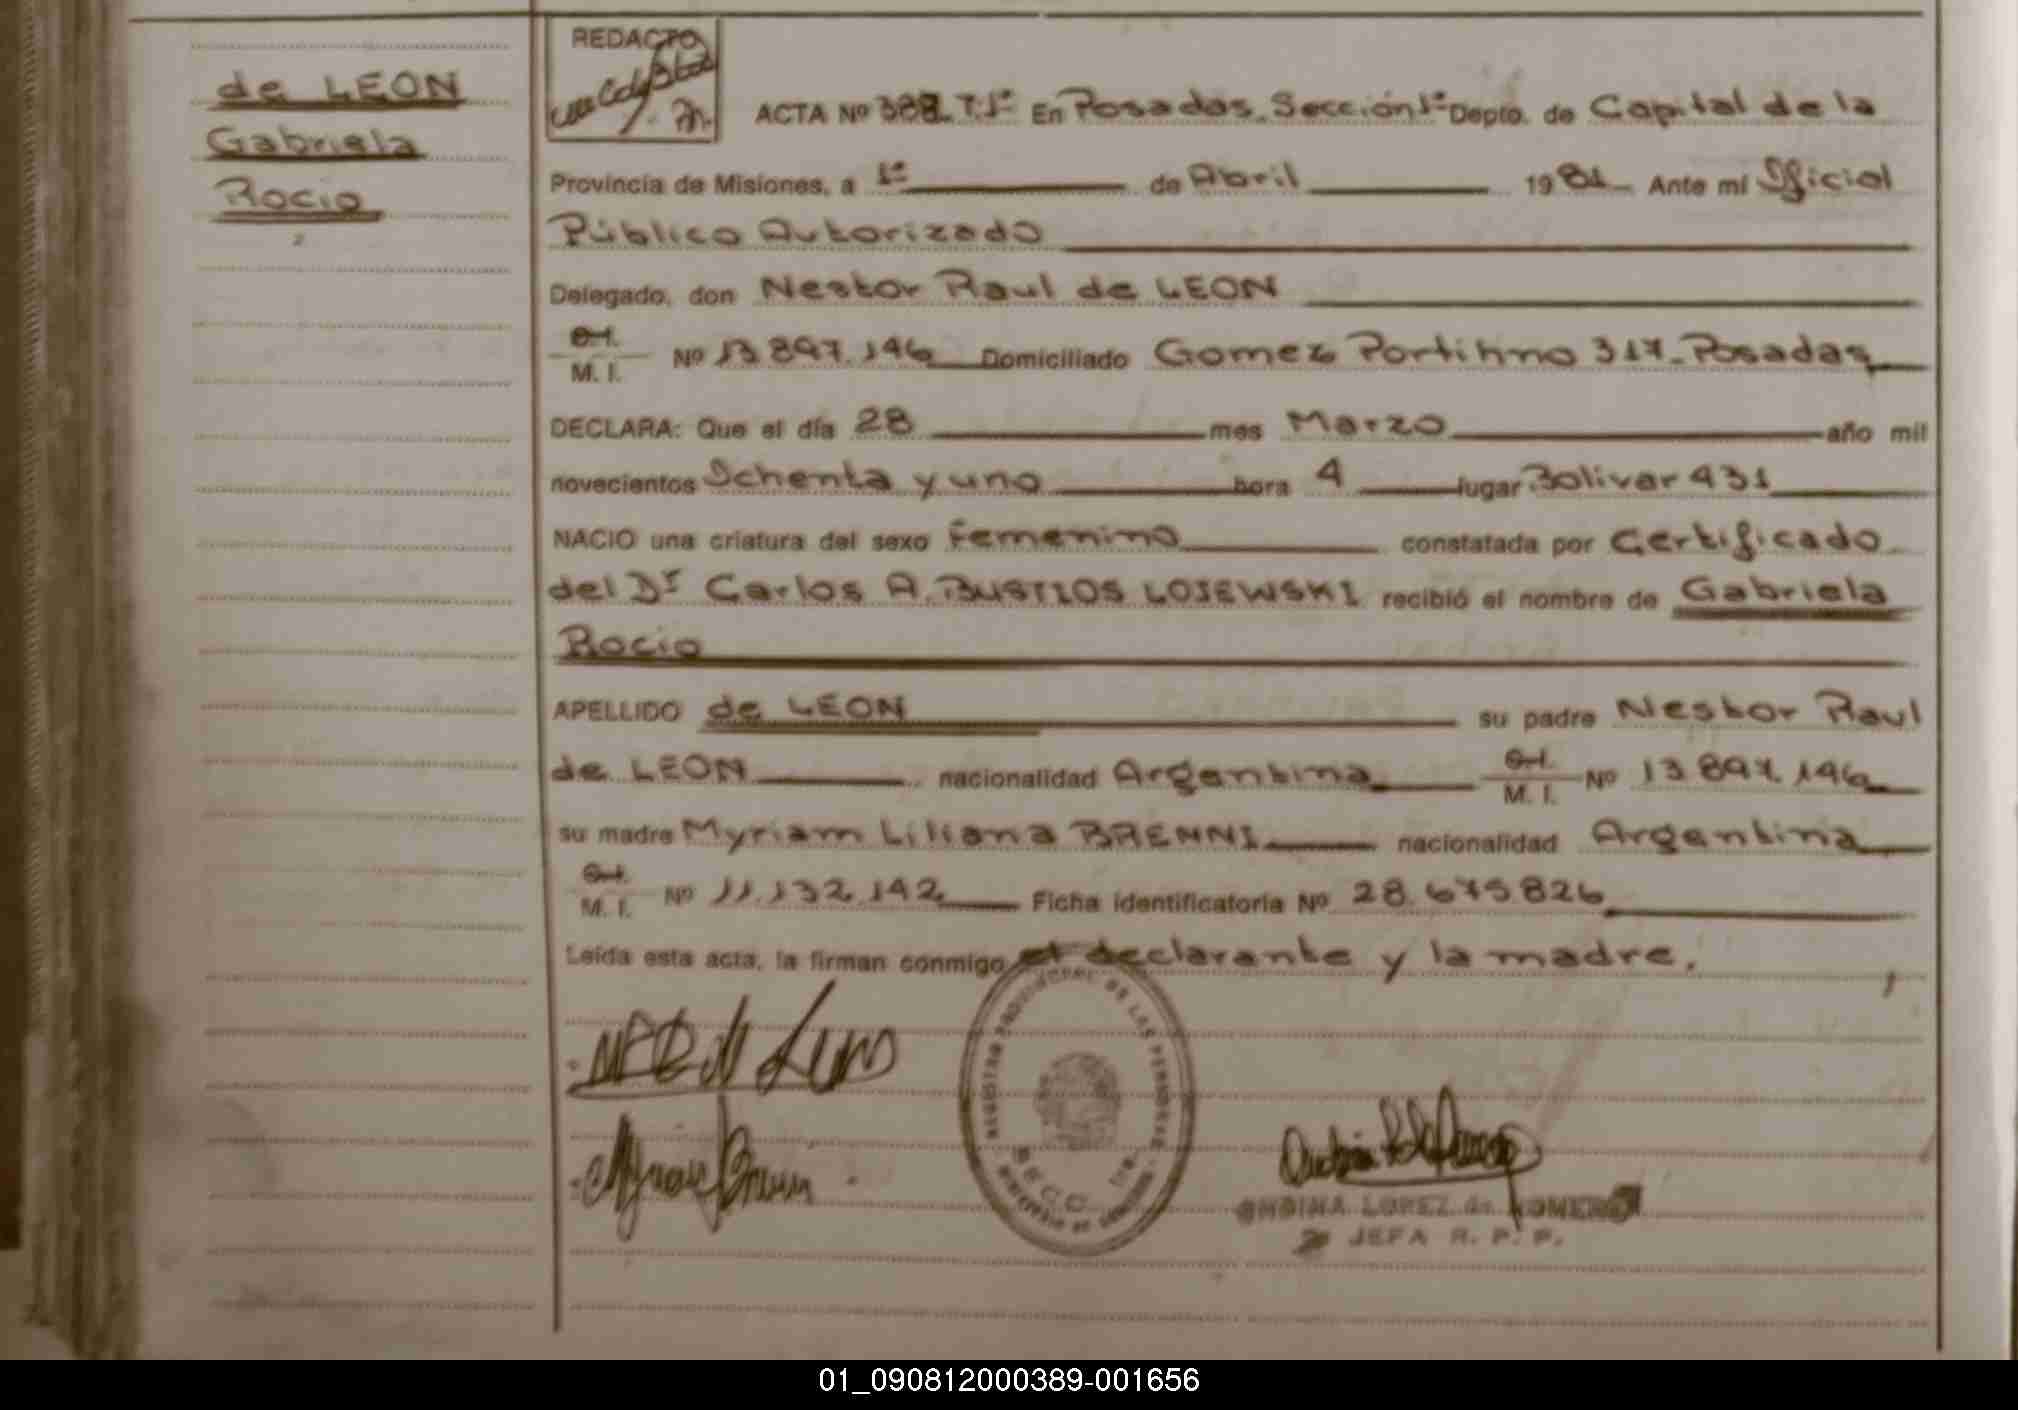 de LEON
Gabriela
Rocio
REDACTO
ACTA Nº 388 T.1º En Posadas Sección 1ª Depto. de Capital de la
Provincia de Misiones, a 1º de Abril 1981 Ante mí Oficial
Público Autorizado
Delegado, don Nestor Raul de LEON
C.I.
M. I. Nº 13.897.146 Domiciliado Gomez Portinho 317 - Posadas
DECLARA: Que el día 28 mes Marzo año mil
novecientos Ochenta y uno hora 4 lugar Bolivar 431
NACIO una criatura del sexo Femenino constatada por Certificado
del Dr Carlos A. BUSTIOS LOJEWSKI recibió el nombre de Gabriela
Rocio
APELLIDO de LEON su padre Nestor Raul
de LEON nacionalidad Argentina M. I. Nº 13.897.146
su madre Myriam Liliana BRENNI nacionalidad Argentina
M. I. Nº 11.132.142 Ficha identificatoria Nº 28.675826
Leída esta acta, la firman conmigo el declarante y la madre.
REGISTRO PROVINCIAL DE LAS PERSONAS
MINISTERIO DE GOBIERNO
LOPEZ de ROMERO
JEFA R. P. P.
01_090812000389-001656